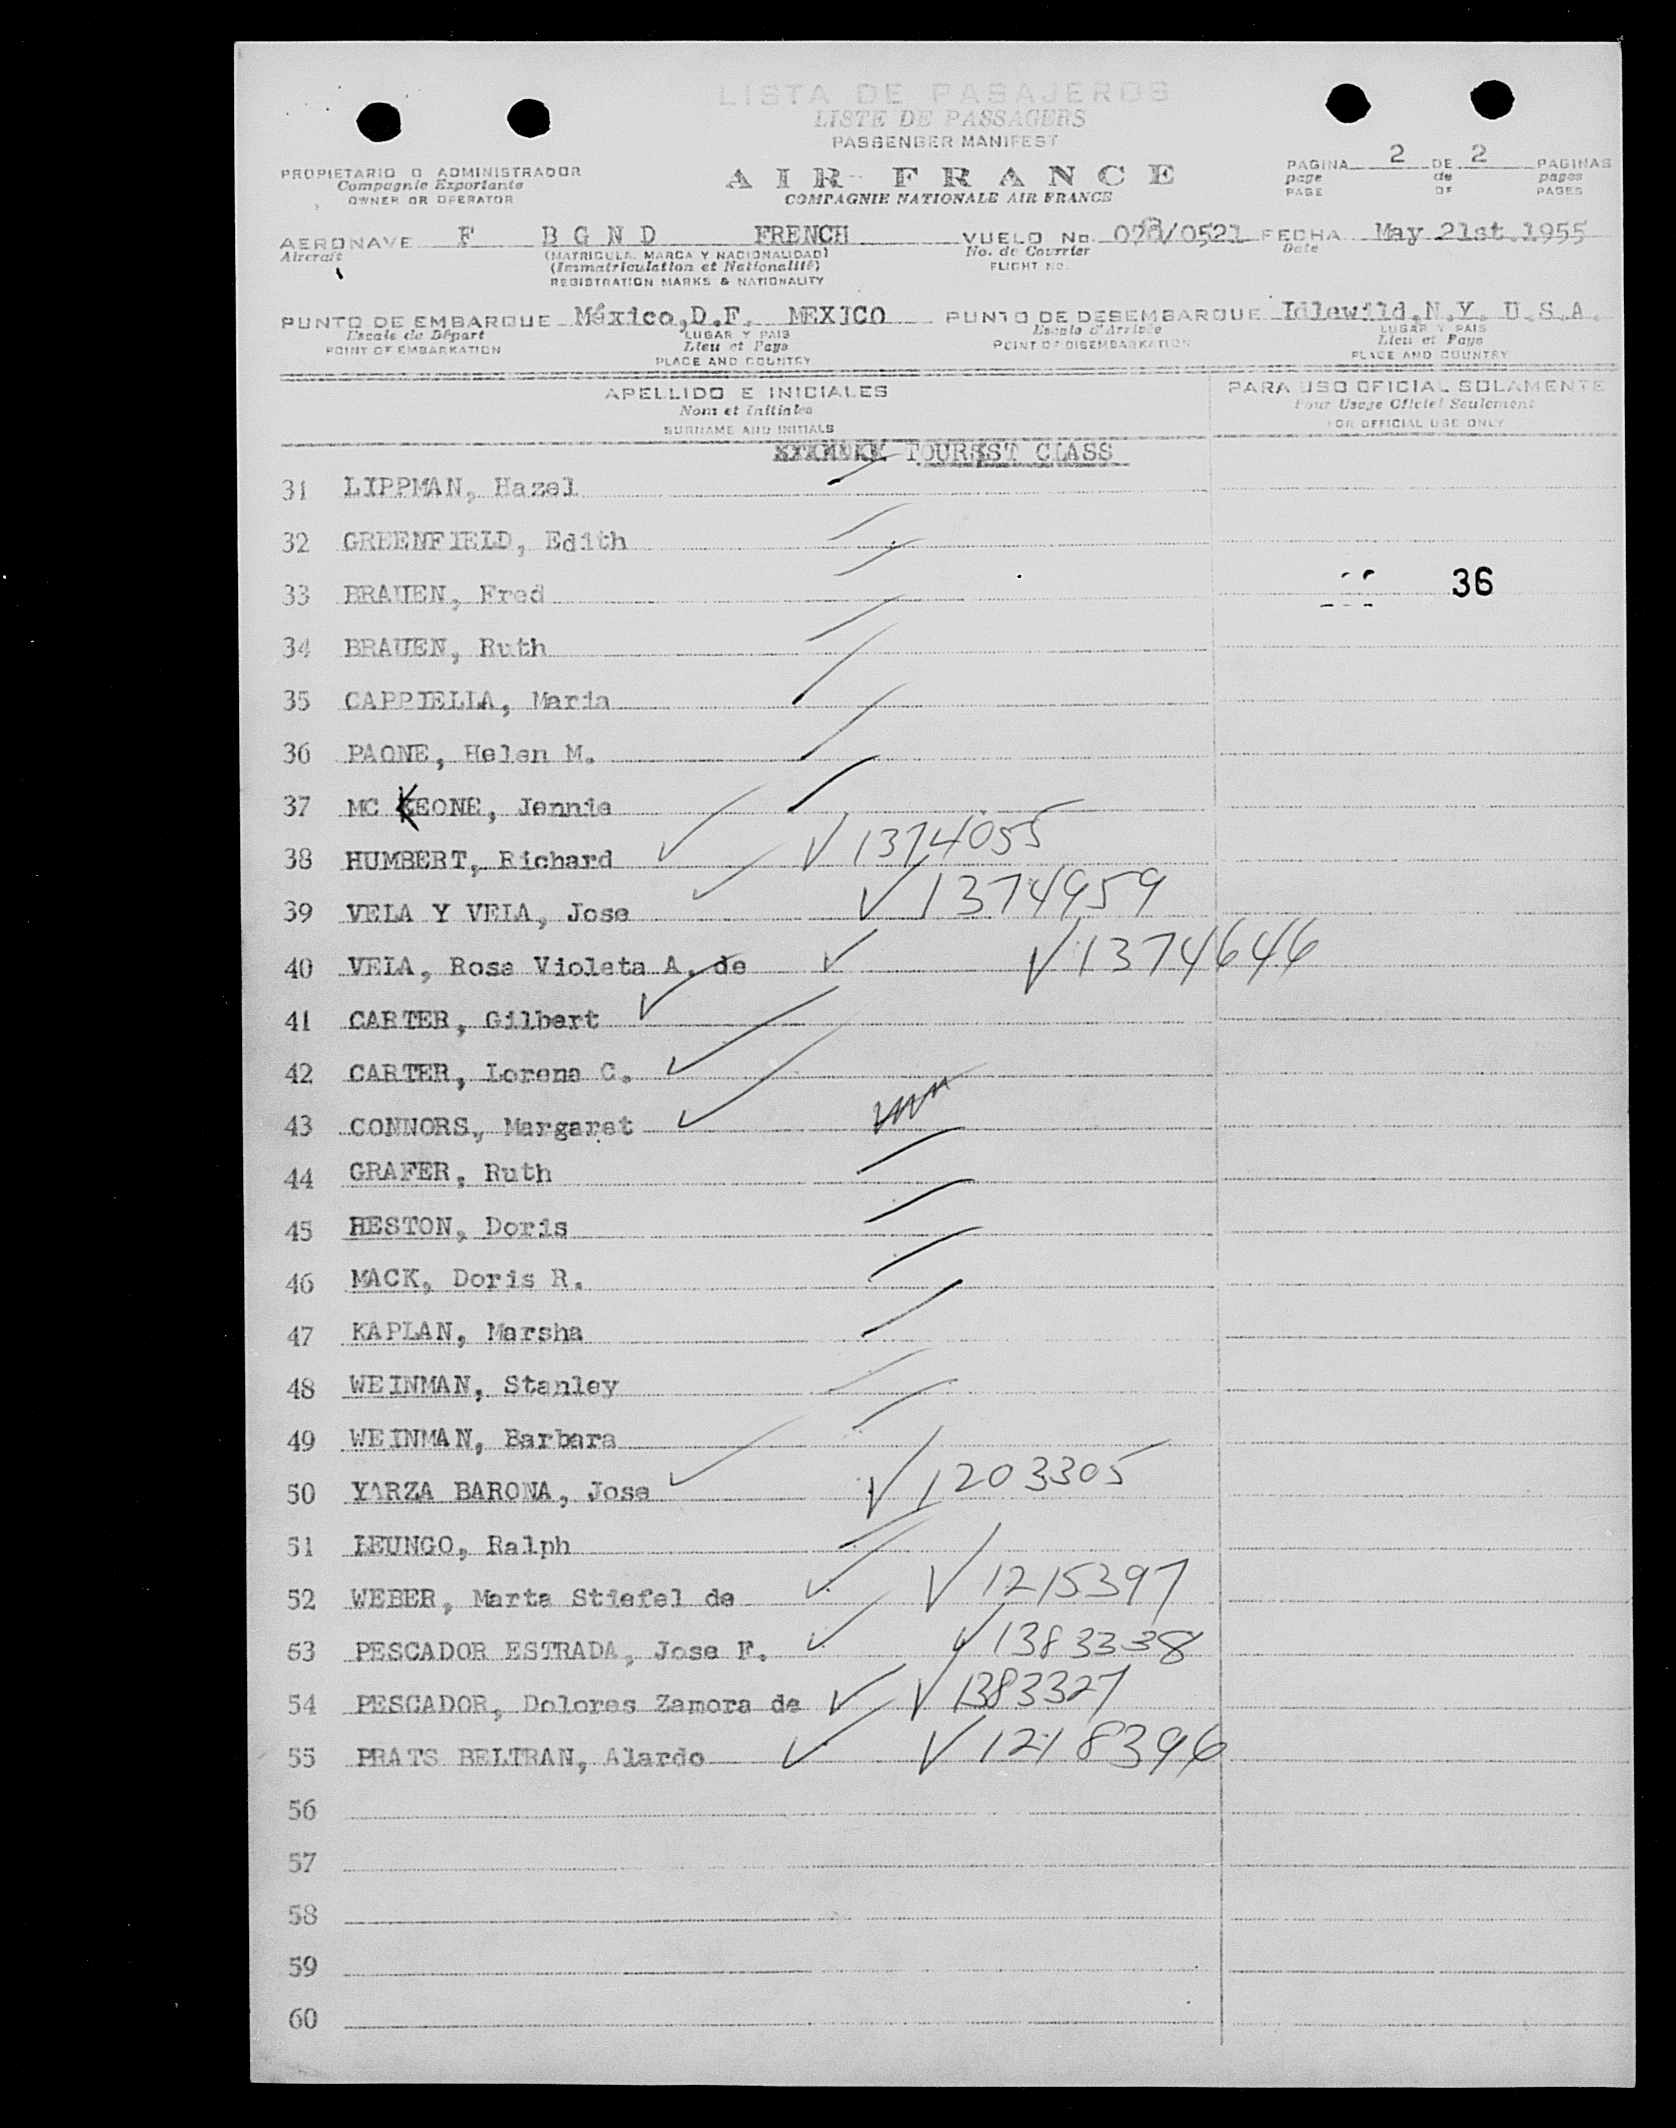 LISTA DE PASAJEROS
LISTE DE PASSAGERS
PASSENGER MANIFEST
AIR FRANCE
COMPAGNIE NATIONALE AIR FRANCE
PROPIETARIO O ADMINISTRADOR
Compagnie Exportante
OWNER OR OPERATOR
PAGINA 2 DE 2 PAGINAS
page de pages
PAGE OF PAGES
AERONAVE F BGND FRENCH VUELO No. /0521 FECHA May 21st.1955
Aircraft (MATRICULA, MARCA Y NACIONALIDAD) No. de Courrier Date
(Immatriculation et Nationalité) FLIGHT NO.
REGISTRATION MARKS & NATIONALITY
PUNTO DE EMBARQUE México,D.F. MEXICO PUNTO DE DESEMBARQUE Idlewild,N.Y. U.S.A.
Escale de Départ LUGAR Y PAIS Escale d'Arrivée LUGAR Y PAIS
POINT OF EMBARKATION Lieu et Pays POINT OF DISEMBARKATION Lieu et Pays
PLACE AND COUNTRY PLACE AND COUNTRY
APELLIDO E INICIALES PARA USO OFICIAL SOLAMENTE
Nom et Initiales Pour Usage Officiel Seulement
SURNAME AND INITIALS FOR OFFICIAL USE ONLY
TOURIST CLASS
31 LIPPMAN, Hazel
32 GREENFIELD, Edith
33 BRAUEN, Fred 36
34 BRAUEN, Ruth
35 CAPPIELLA, Maria
36 PAONE, Helen M.
37 MC KEONE, Jennie
38 HUMBERT, Richard √ √ 1374055
39 VELA Y VELA, Jose √ √ 1374959
40 VELA, Rosa Violeta A. de √ √ 1374646
41 CARTER, Gilbert √
42 CARTER, Lorena C. √
43 CONNORS, Margaret √
44 GRAFER, Ruth
45 HESTON, Doris
46 MACK, Doris R.
47 KAPLAN, Marsha
48 WEINMAN, Stanley
49 WEINMAN, Barbara
50 YARZA BARONA, Jose √ √ 1203305
51 LEUNGO, Ralph
52 WEBER, Marta Stiefel de √ √ 1215397
53 PESCADOR ESTRADA, Jose F. √ √ 1383338
54 PESCADOR, Dolores Zamora de √ √ 1383327
55 PRATS BELTRAN, Alardo √ √ 1218396
56
57
58
59
60